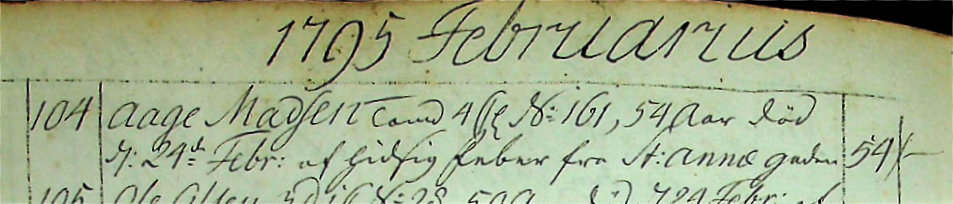 1795 Februarius
104 Aage Madsen Tomd 4 No: 161, 54 Aar død
d: 24de Febr: af hidsig feber fra St: Annæ gaden 54
105 No: 28 Febr: af